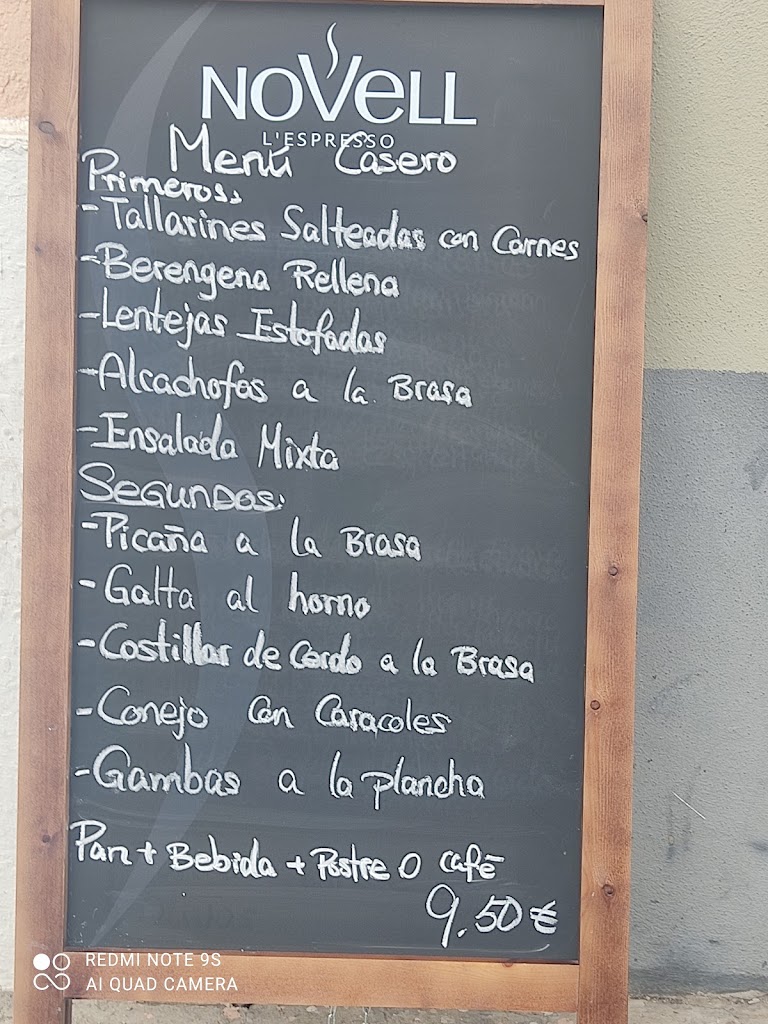 NOVELL
L'ESPRESSO
Menú Casero
Primeros:
-Tallarines Salteadas con Carnes
-Berengena Rellena
-Lentejas Estofadas
-Alcachofas a la Brasa
-Ensalada Mixta
SEGUNDOS:
-Picaña a la Brasa
-Galta al horno
-Costillar de Cerdo a la Brasa
-Conejo Con Caracoles
-Gambas a la plancha
Pan + Bebida + Postre O café
9.50 €
REDMI NOTE 9S
AI QUAD CAMERA